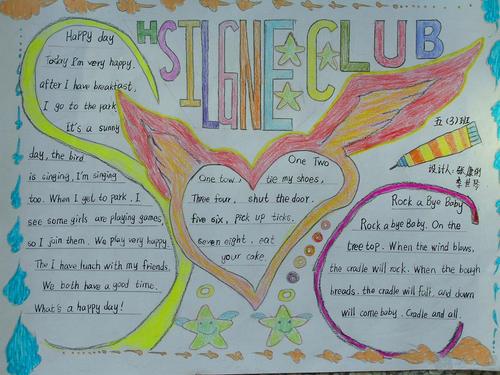 HSILGNE CLUB
Happy day
Today I'm very happy.
after I have breakfast,
I go to the park
It's a sunny
day, the bird
is singing, I'm singing
too. When I get to park, I
see some girls are playing games
so I join them. We play very happy.
The I have lunch with my friends.
We both have a good time.
What's a happy day!
One Two
One tow, tie my shoes,
Three four, shut the door.
five six, pick up ticks.
seven eight, eat
your cake.
五(3)班
设计人:
Rock a Bye Baby
Rock a bye Baby. On the
tree top. When the wind blows,
the cradle will rock. When the bough
breads. the cradle will fall. and down
will come baby. Cradle and all.